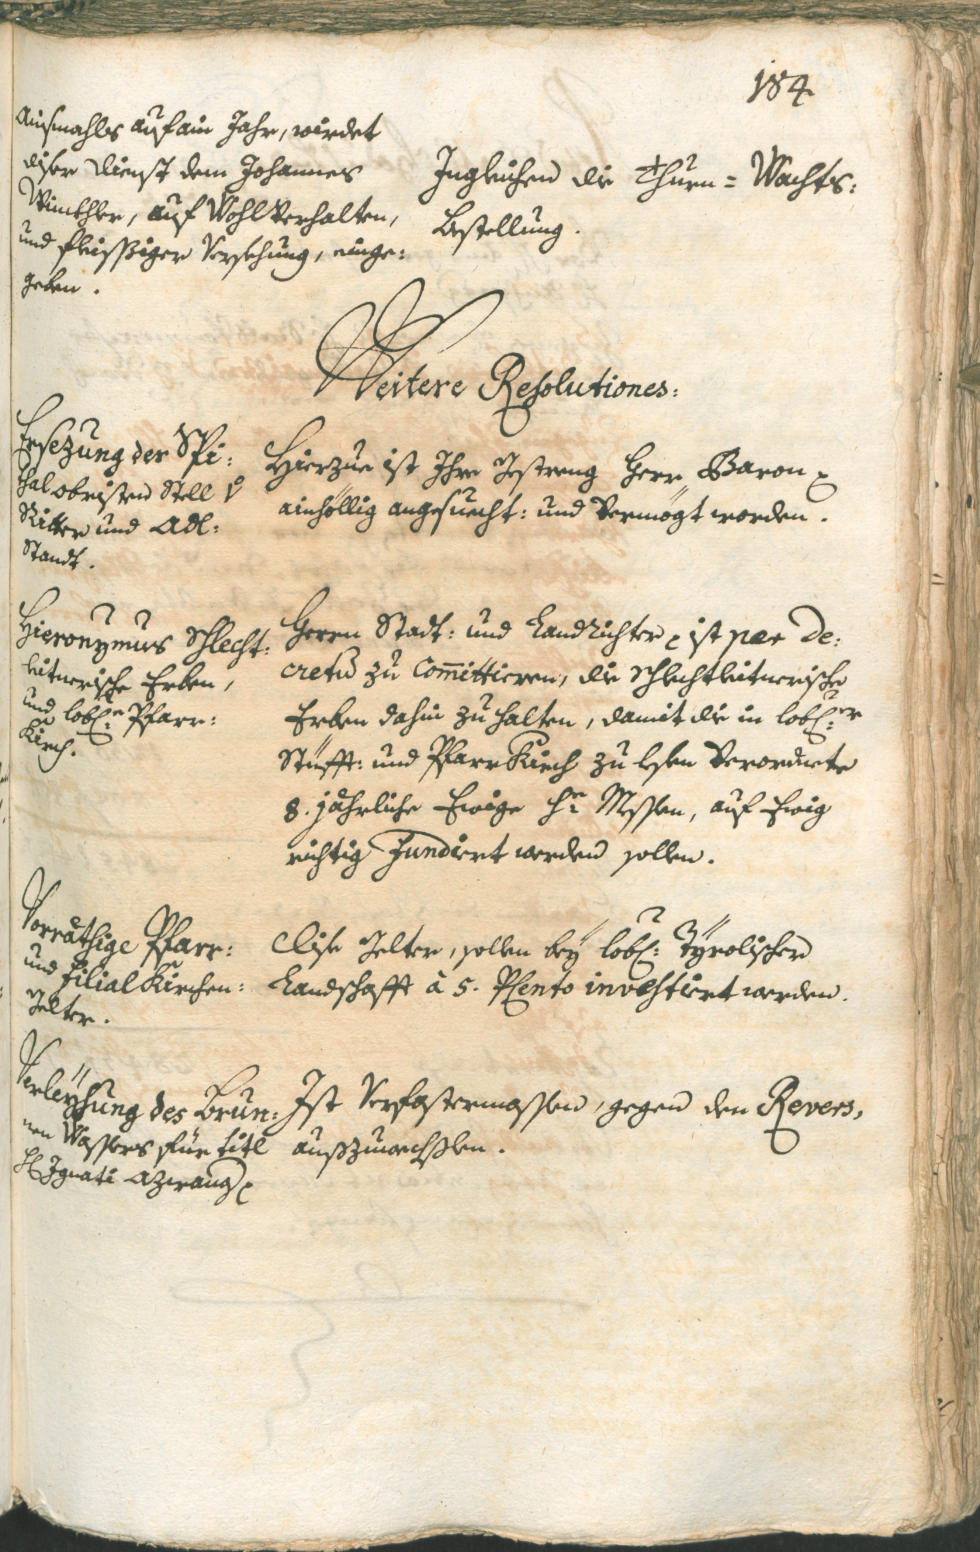 184
Ausmahls auf ain Jahr, wirdet
diser Dienst dem Johannes
auf Wohlverhalten,
und fleissiger Versehung, einge:
geben.
Ingleichen die Thurn= Wachts:
bestellung.
Weitere Resolutiones:
Ersezung der Spi:
tal obristen Stell
Ritter und Adl:
Standt.
Hierzue ist Ihro Gestreng Herr Baron
ainhöllig angesuecht: und vermögt worden.
Hieronymus Schlecht:
leitnerische Erben,
und lobl: Pfarr:
Kirch.
Herrn Stadt: und Landrichter ist per De:
cretū zu Committieren, die Schlechtleitnerische
Erben dahin zu halten, damit die in lobl:er
Stüfft: und PfarrKirch zu lesen verordnete
8. jährliche Ewige H: Messen, auf Ewig
richtig Fundiert werden sollen.
Vorräthige Pfarr:
und Filial Kirchen:
Gelter.
Dise Gelter, sollen bey lobl: Tyrolischer
Landschafft à 5. PCento investiert werden.
Verleÿhung des Brun:
nen Wassers für titl
H Ignati Azwang
Ist Verfastermassen, gegen den Revers,
ausszuwechslen.